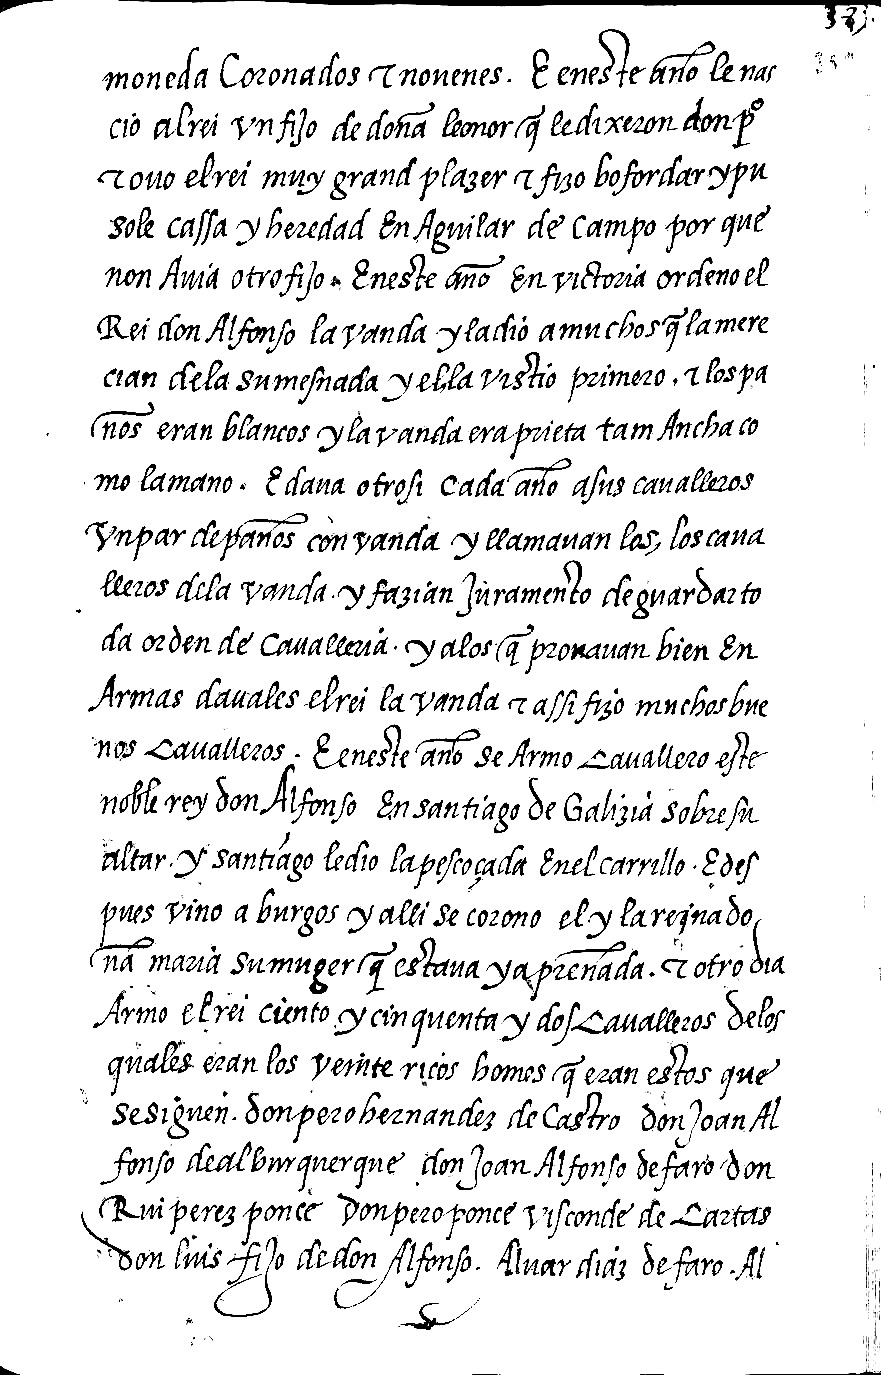 moneda Coronados & nouenes. E eneste año le nas
cio al rei vn fijo de doña leonor q̃ le dixeron don p̊
& ouo el rei muy grand plazer & fizo bofordar y pu
sole cassa y heredad En Aguilar de Campo por que
non Auia otro fijo. Eneste año En victoria ordeno el
Rei don Alfonso la vanda y la dio a muchos q̃ la mere
cian de la su mesnada y el la vistio primero. & los pa
ños eran blancos y la vanda era prieta tam Ancha co
mo la mano. E daua otrosi Cada año a sus caualleros
vn par de paños con vanda y llamauan los, los caua
lleros de la vanda. y fazian Juramento de guardar to
da orden de Caualleria. y a los q̃ prouauan bien En
Armas dauales el rei la vanda & assi fizo muchos bue
nos Caualleros. E eneste año se Armo Cauallero este
noble rey don Alfonso En santiago de Galizia sobre su
altar. y santiago le dio la pescoçada En el carrillo. E des
pues vino a burgos y alli se corono el y la reina do
ña maria su muger q̃ estaua ya preñada. & otro dia
Armo el rei ciento y cinquenta y dos Caualleros de los
quales eran los veinte ricos homes q̃ eran estos que
se siguen. don pero hernandez de Castro don Joan Al
fonso de alburquerque don Joan Alfonso de faro don
Rui perez ponce Don pero ponce visconde de Cartas
don luis fijo de don Alfonso. Aluar diaz de faro. Al